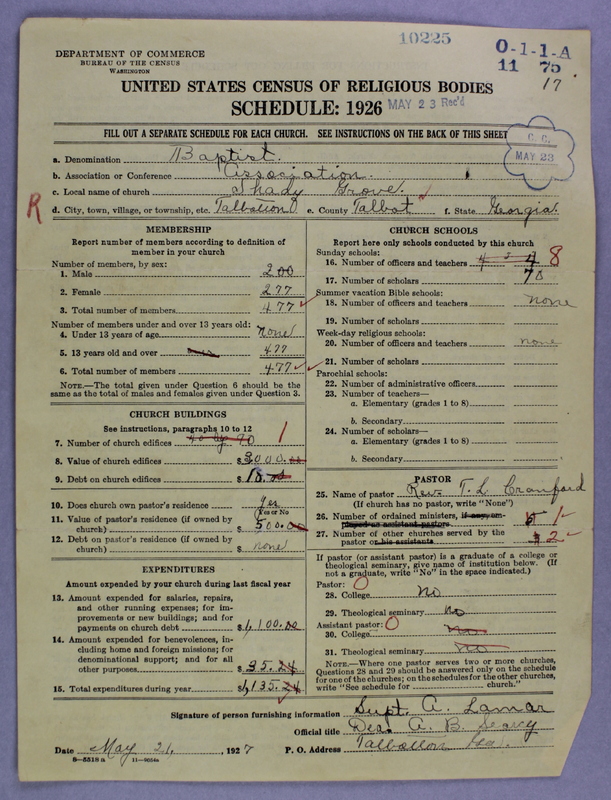 10225
O-1-1-A
11 75
17
DEPARTMENT OF COMMERCE
BUREAU OF THE CENSUS
WASHINGTON
UNITED STATES CENSUS OF RELIGIOUS BODIES
SCHEDULE: 1926
MAY 23 Rec'd
FILL OUT A SEPARATE SCHEDULE FOR EACH CHURCH. SEE INSTRUCTIONS ON THE BACK OF THIS SHEET
C. C.
MAY 23
a. Denomination Baptist.
b. Association or Conference Association.
c. Local name of church Shady Grove.
R
d. City, town, village, or township, etc. Talbotton e. County Talbot f. State Georgia.
MEMBERSHIP
Report number of members according to definition of member in your church
Number of members, by sex:
1. Male 200
2. Female 277
3. Total number of members 477
Number of members under and over 13 years old:
4. Under 13 years of age none
5. 13 years old and over 477
6. Total number of members 477
NOTE.—The total given under Question 6 should be
same as the total of males and females given under Question 3.
CHURCH BUILDINGS
See instructions, paragraphs 10 to 12
7. Number of church edifices 40 by 90 1
8. Value of church edifices $3000.00
9. Debt on church edifices $
10. Does church own pastor's residence yes
(Yes or No
11. Value of pastor's residence (if owned by
church) $500.00
12. Debt on pastor's residence (if owned by
church) $ none
EXPENDITURES
Amount expended by your church during last fiscal year
13. Amount expended for salaries, repairs,
and other running expenses; for im-
provements or new buildings; and for
payments on church debt $1,100.00
14. Amount expended for benevolences, in-
cluding home and foreign missions; for
denominational support; and for all
other purposes $35.24
15. Total expenditures during year $1,135.24
CHURCH SCHOOLS
Report here only schools conducted by this church
Sunday schools:
16. Number of officers and teachers 4 8
17. Number of scholars 78
Summer vacation Bible schools:
18. Number of officers and teachers none
19. Number of scholars
Week-day religious schools:
20. Number of officers and teachers none
21. Number of scholars
Parochial schools:
22. Number of administrative officers
23. Number of teachers—
a. Elementary (grades 1 to 8)
b. Secondary
24. Number of scholars—
a. Elementary (grades 1 to 8)
b. Secondary
PASTOR
25. Name of pastor Rev. T. L. Cranford
(If church has no pastor, write "None")
26. Number of ordained ministers, if any, em-
ployed as assistant pastors 1
27. Number of other churches served by the
pastor or his assistants 2
If pastor (or assistant pastor) is a graduate of a college or
theological seminary, give name of institution below. (If
not a graduate, write "No" in the space indicated.)
Pastor: 0
28. College no
29. Theological seminary no
Assistant pastor: 0
30. College no
31. Theological seminary no
NOTE.—Where one pastor serves two or more churches,
Questions 28 and 29 should be answered only on the schedule
for one of the churches; on the schedules for the other churches,
write "See schedule for church."
Signature of person furnishing information Supt. A. Lamar
Official title Dea. A. B. Seavy
Date May 21, 1927 P. O. Address Talbotton Ga.
8—5518 a 11—9554a